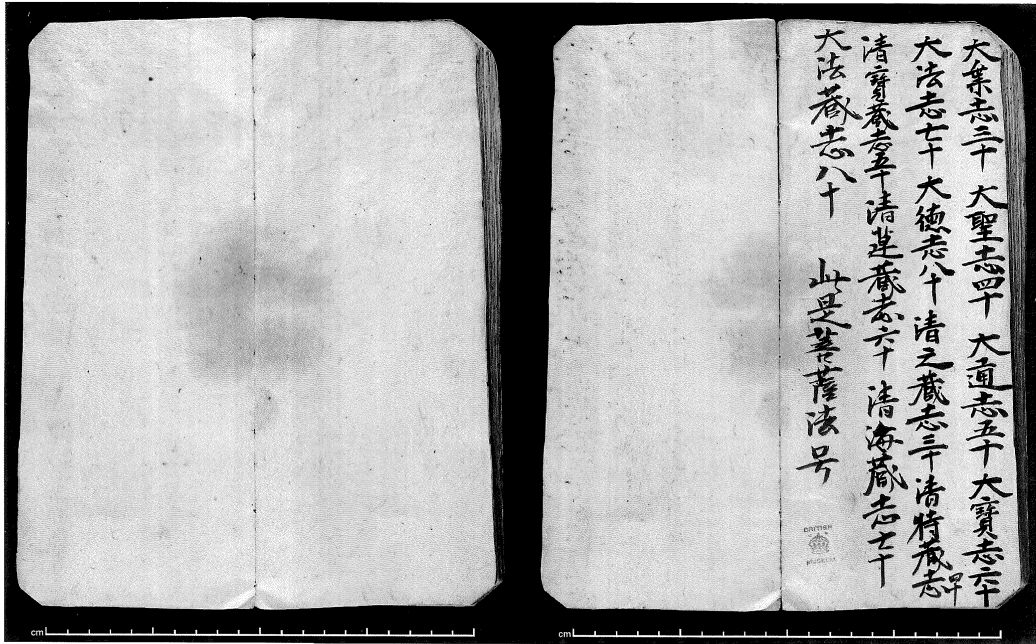 大葉志三十 大聖志四十 大通志五十 大寶志六十
大法志七十 大德志八十 清元藏志三十 清特藏志四十
清寶藏志五十 清蓮藏志六十 清海藏志七十
大法藏志八十 此是菩薩法号
BRITISH
MUSEUM
cm
cm